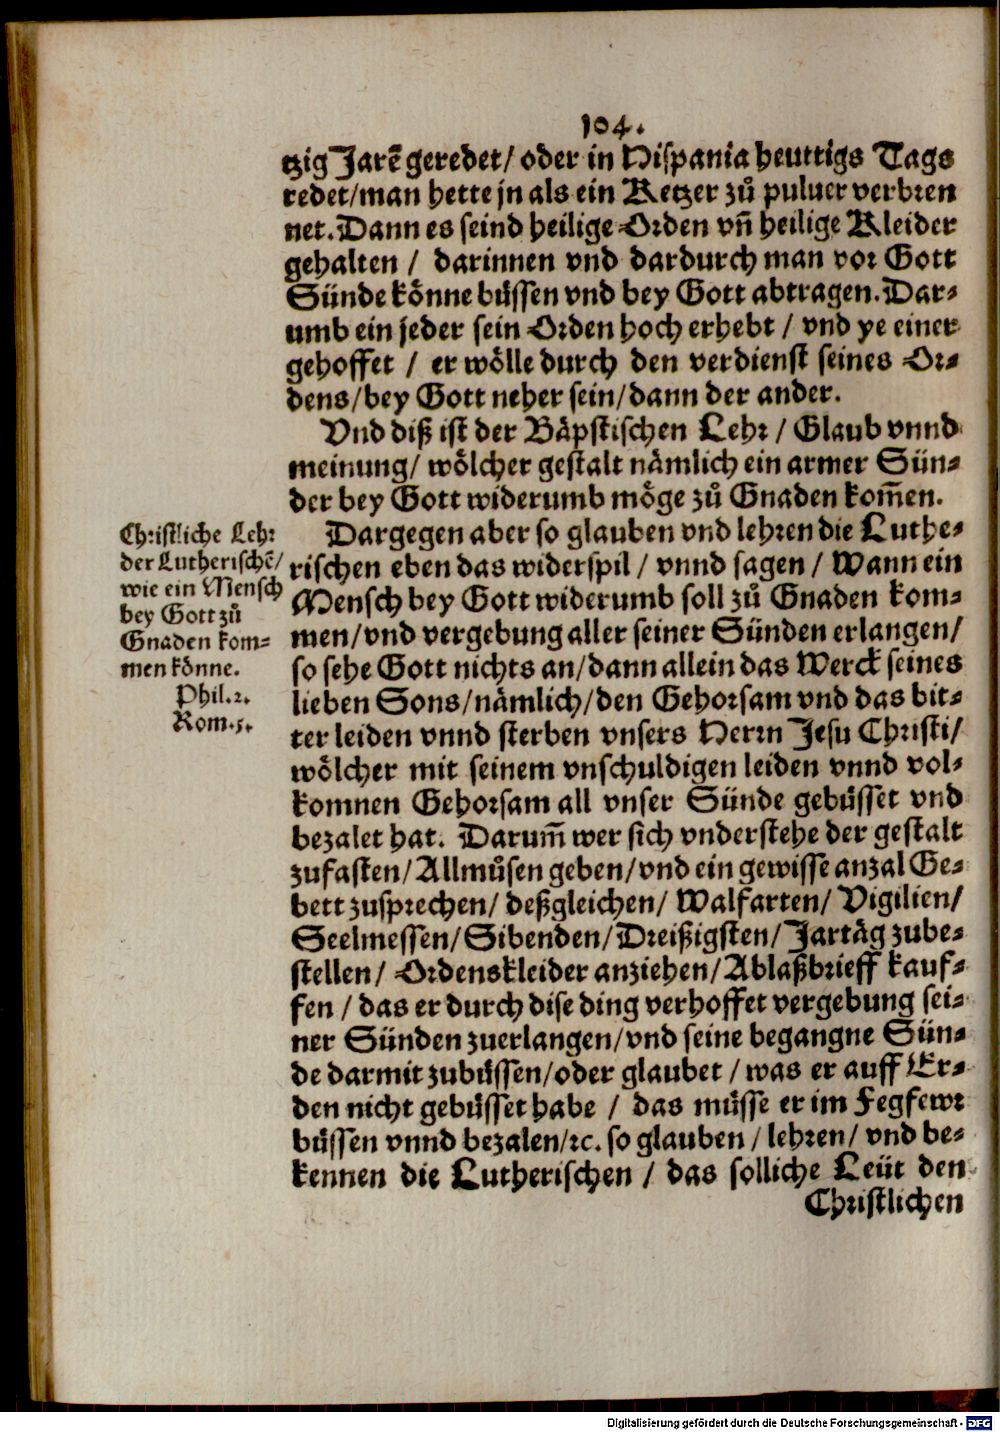 104.
tzig Jarẽ geredet/ oder in Hispania heuttigs Tags
redet/man hette jn als ein Ketzer zů puluer verbren
net. Dann es seind heilige Orden vñ heilige Kleider
gehalten / darinnen vnd dardurch man vor Gott
Sünde könne büssen vnd bey Gott abtragen. Dar-
umb ein jeder sein Orden hoch erhebt / vnd ye einer
gehoffet / er wölle durch den verdienst seines Or-
dens/bey Gott neher sein/dann der ander.
Vnd diß ist der Bäpstischen Lehr / Glaub vnnd
meinung/ wölcher gestalt nämlich ein armer Sün-
der bey Gott widerumb möge zů Gnaden kom̃en.
Christliche Lehr
der Lutherischẽ/
wie ein Mensch
bey Gott zů
Gnaden kom-
men könne.
Phil.2.
Rom.5.
Dargegen aber so glauben vnd lehren die Luthe-
rischen eben das widerspil / vnnd sagen / Wann ein
Mensch bey Gott widerumb soll zů Gnaden kom-
men/vnd vergebung aller seiner Sünden erlangen/
so sehe Gott nichts an/dann allein das Werck seines
lieben Sons/nämlich/den Gehorsam vnd das bit-
ter leiden vnnd sterben vnsers Herrn Jesu Christi/
wölcher mit seinem vnschuldigen leiden vnnd vol-
komnen Gehorsam all vnser Sünde gebüsset vnd
bezalet hat. Darum̃ wer sich vnderstehe der gestalt
zufasten/Allmůsen geben/vnd ein gewisse anzal Ge-
bett zusprechen/ deßgleichen/ Walfarten/ Vigilien/
Seelmessen/Sibenden/Dreißigsten/Jartäg zube-
stellen/ Ordenskleider anziehen/Ablaßbrieff kauf-
fen / das er durch dise ding verhoffet vergebung sei-
ner Sünden zuerlangen/vnd seine begangne Sün-
de darmit zubüssen/oder glaubet / was er auff Er-
den nicht gebüsset habe / das müsse er im Fegfewr
büssen vnnd bezalen/ꝛc. so glauben / lehren/ vnd be-
kennen die Lutherischen / das solliche Leüt den
Christlichen
Digitalisierung gefördert durch die Deutsche Forschungsgemeinschaft - DFG